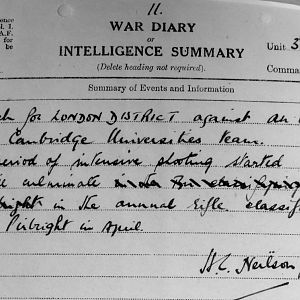 II.
WAR DIARY
or
INTELLIGENCE SUMMARY
(Delete heading not required).
Unit 3
Comma
Summary of Events and Information
for LONDON DISTRICT against an
Cambridge Universities team.
period of intensive shooting started
culminate
in the annual Rifle classif
Pirbright in April.
H.C. Neilson